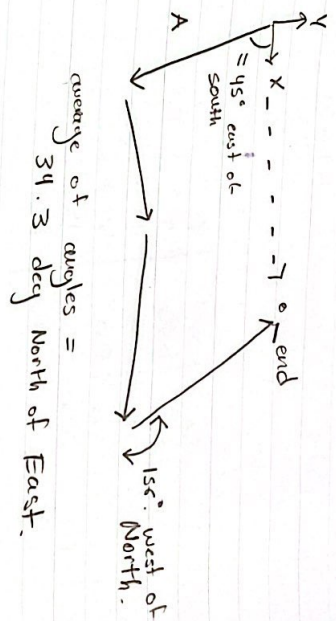 Y
X
A
= 45° east of
south
end
155° west of
North.
average of angles =
34.3 deg North of East.